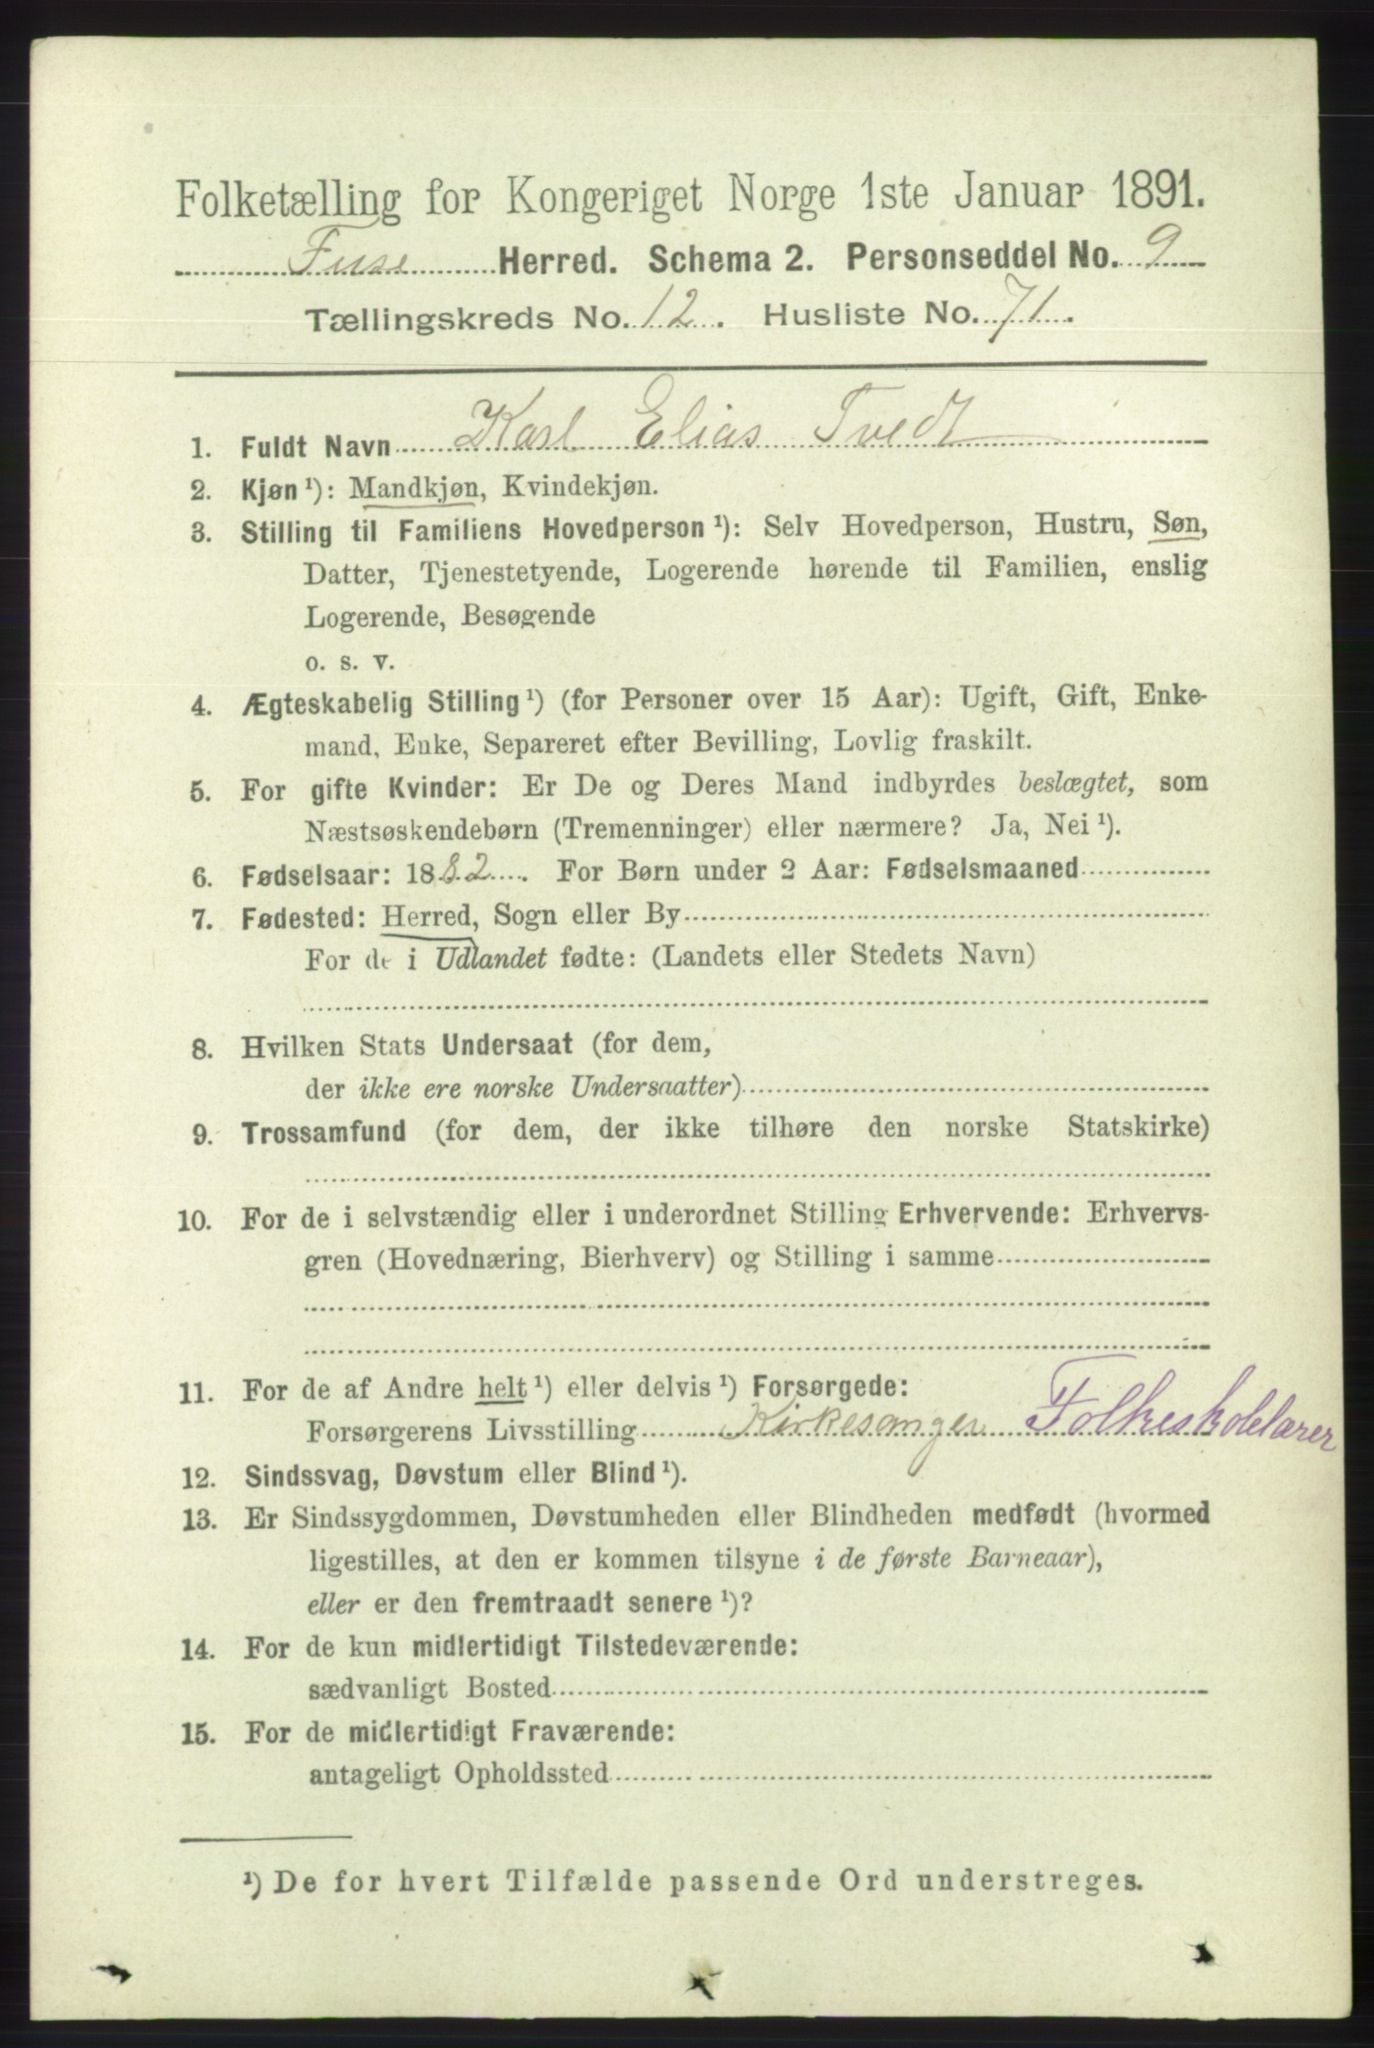 Folketælling for Kongeriget Norge 1ste Januar 1891.
Fuse Herred. Schema 2. Personseddel No. 9
Tællingskreds No. 12. Husliste No. 71.
1. Fuldt Navn Karl Elias Tvedt
2. Kjøn ¹): Mandkjøn, Kvindekjøn.
3. Stilling til Familiens Hovedperson ¹): Selv Hovedperson, Hustru, Søn,
Datter, Tjenestetyende, Logerende hørende til Familien, enslig
Logerende, Besøgende
o. s. v.
4. Ægteskabelig Stilling ¹) (for Personer over 15 Aar): Ugift, Gift, Enke-
mand, Enke, Separeret efter Bevilling, Lovlig fraskilt.
5. For gifte Kvinder: Er De og Deres Mand indbyrdes beslægtet, som
Næstsøskendebørn (Tremenninger) eller nærmere? Ja, Nei ¹).
6. Fødselsaar: 1882. For Børn under 2 Aar: Fødselsmaaned
7. Fødested: Herred, Sogn eller By
For de i Udlandet fødte: (Landets eller Stedets Navn)
8. Hvilken Stats Undersaat (for dem,
der ikke ere norske Undersaatter)
9. Trossamfund (for dem, der ikke tilhøre den norske Statskirke)
10. For de i selvstændig eller i underordnet Stilling Erhvervende: Erhvervs-
gren (Hovednæring, Bierhverv) og Stilling i samme
11. For de af Andre helt ¹) eller delvis ¹) Forsørgede:
Forsørgerens Livsstilling Kirkesanger Folkeskolelærer
12. Sindssvag, Døvstum eller Blind ¹).
13. Er Sindssygdommen, Døvstumheden eller Blindheden medfødt (hvormed
ligestilles, at den er kommen tilsyne i de første Barneaar),
eller er den fremtraadt senere ¹)?
14. For de kun midlertidigt Tilstedeværende:
sædvanligt Bosted
15. For de midlertidigt Fraværende:
antageligt Opholdssted
¹) De for hvert Tilfælde passende Ord understreges.